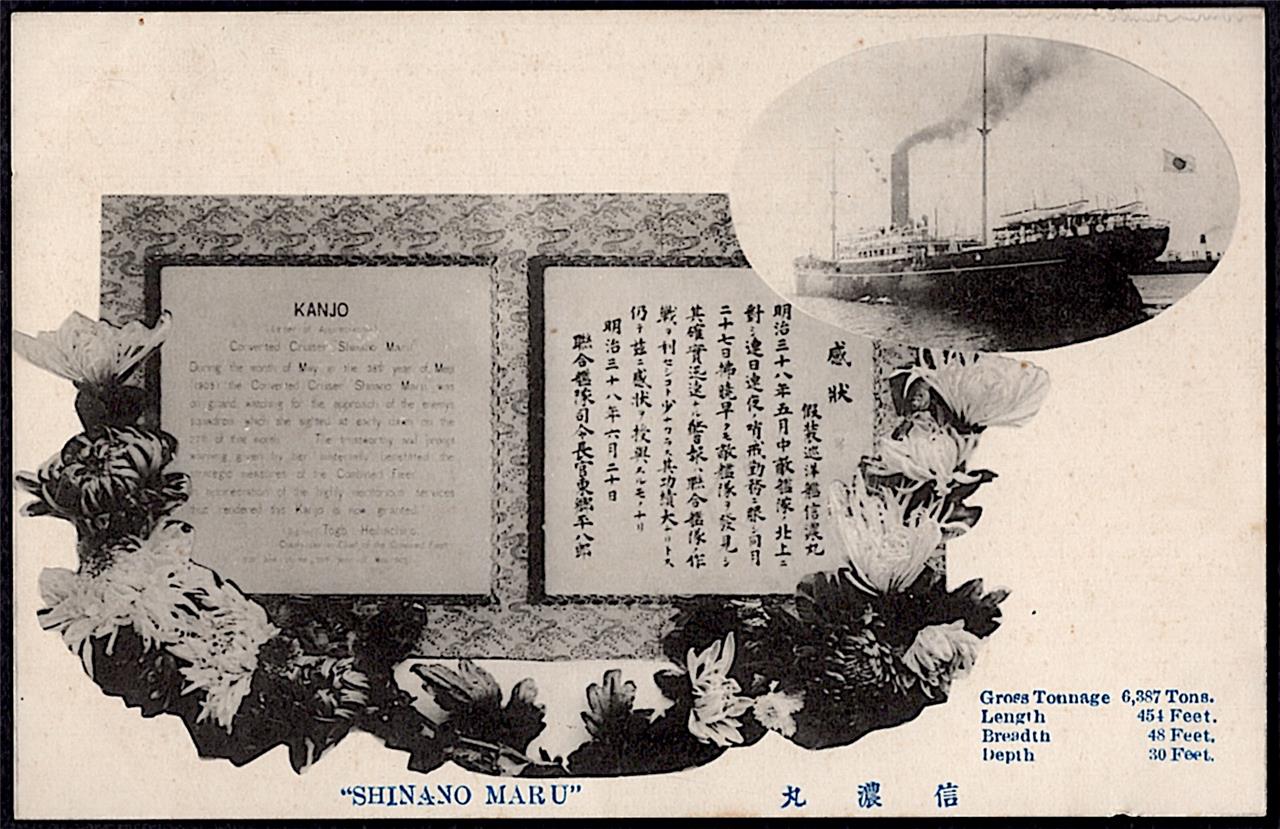 KANJO
(Letter of Appreciation)
Converted Cruiser "Shinano Maru"
During the month of May in the 38th year of Meiji
(1905) the Converted Cruiser Shinano Maru was
on guard, watching for the approach of the enemy's
squadron which she sighted at early dawn on the
27th of the month. The trustworthy and prompt
warning given by her materially benefitted the
strategic measures of the Combined Fleet.
In appreciation of the highly meritorious services
thus rendered this Kanjo is now granted.
Togo Heihachiro,
Commander-in-Chief of the Combined Fleet
感狀
假裝巡洋艦信濃丸
明治三十八年五月中敵艦隊ノ北上ニ
對シ連日連夜ノ哨戒勤務ニ服シ同月
二十七日拂曉早クモ敵艦隊ヲ發見シ
其確實迅速ナル警報ハ聯合艦隊ノ作
戰ヲ利セシコト少ナカラス其功績大ナリトス
仍テ茲ニ感狀ヲ授與スルモノナリ
明治三十八年六月二十日
聯合艦隊司令長官東鄕平八郎
Gross Tonnage 6,387 Tons.
Length 454 Feet.
Breadth 48 Feet.
Depth 30 Feet.
"SHINANO MARU"
丸 濃 信